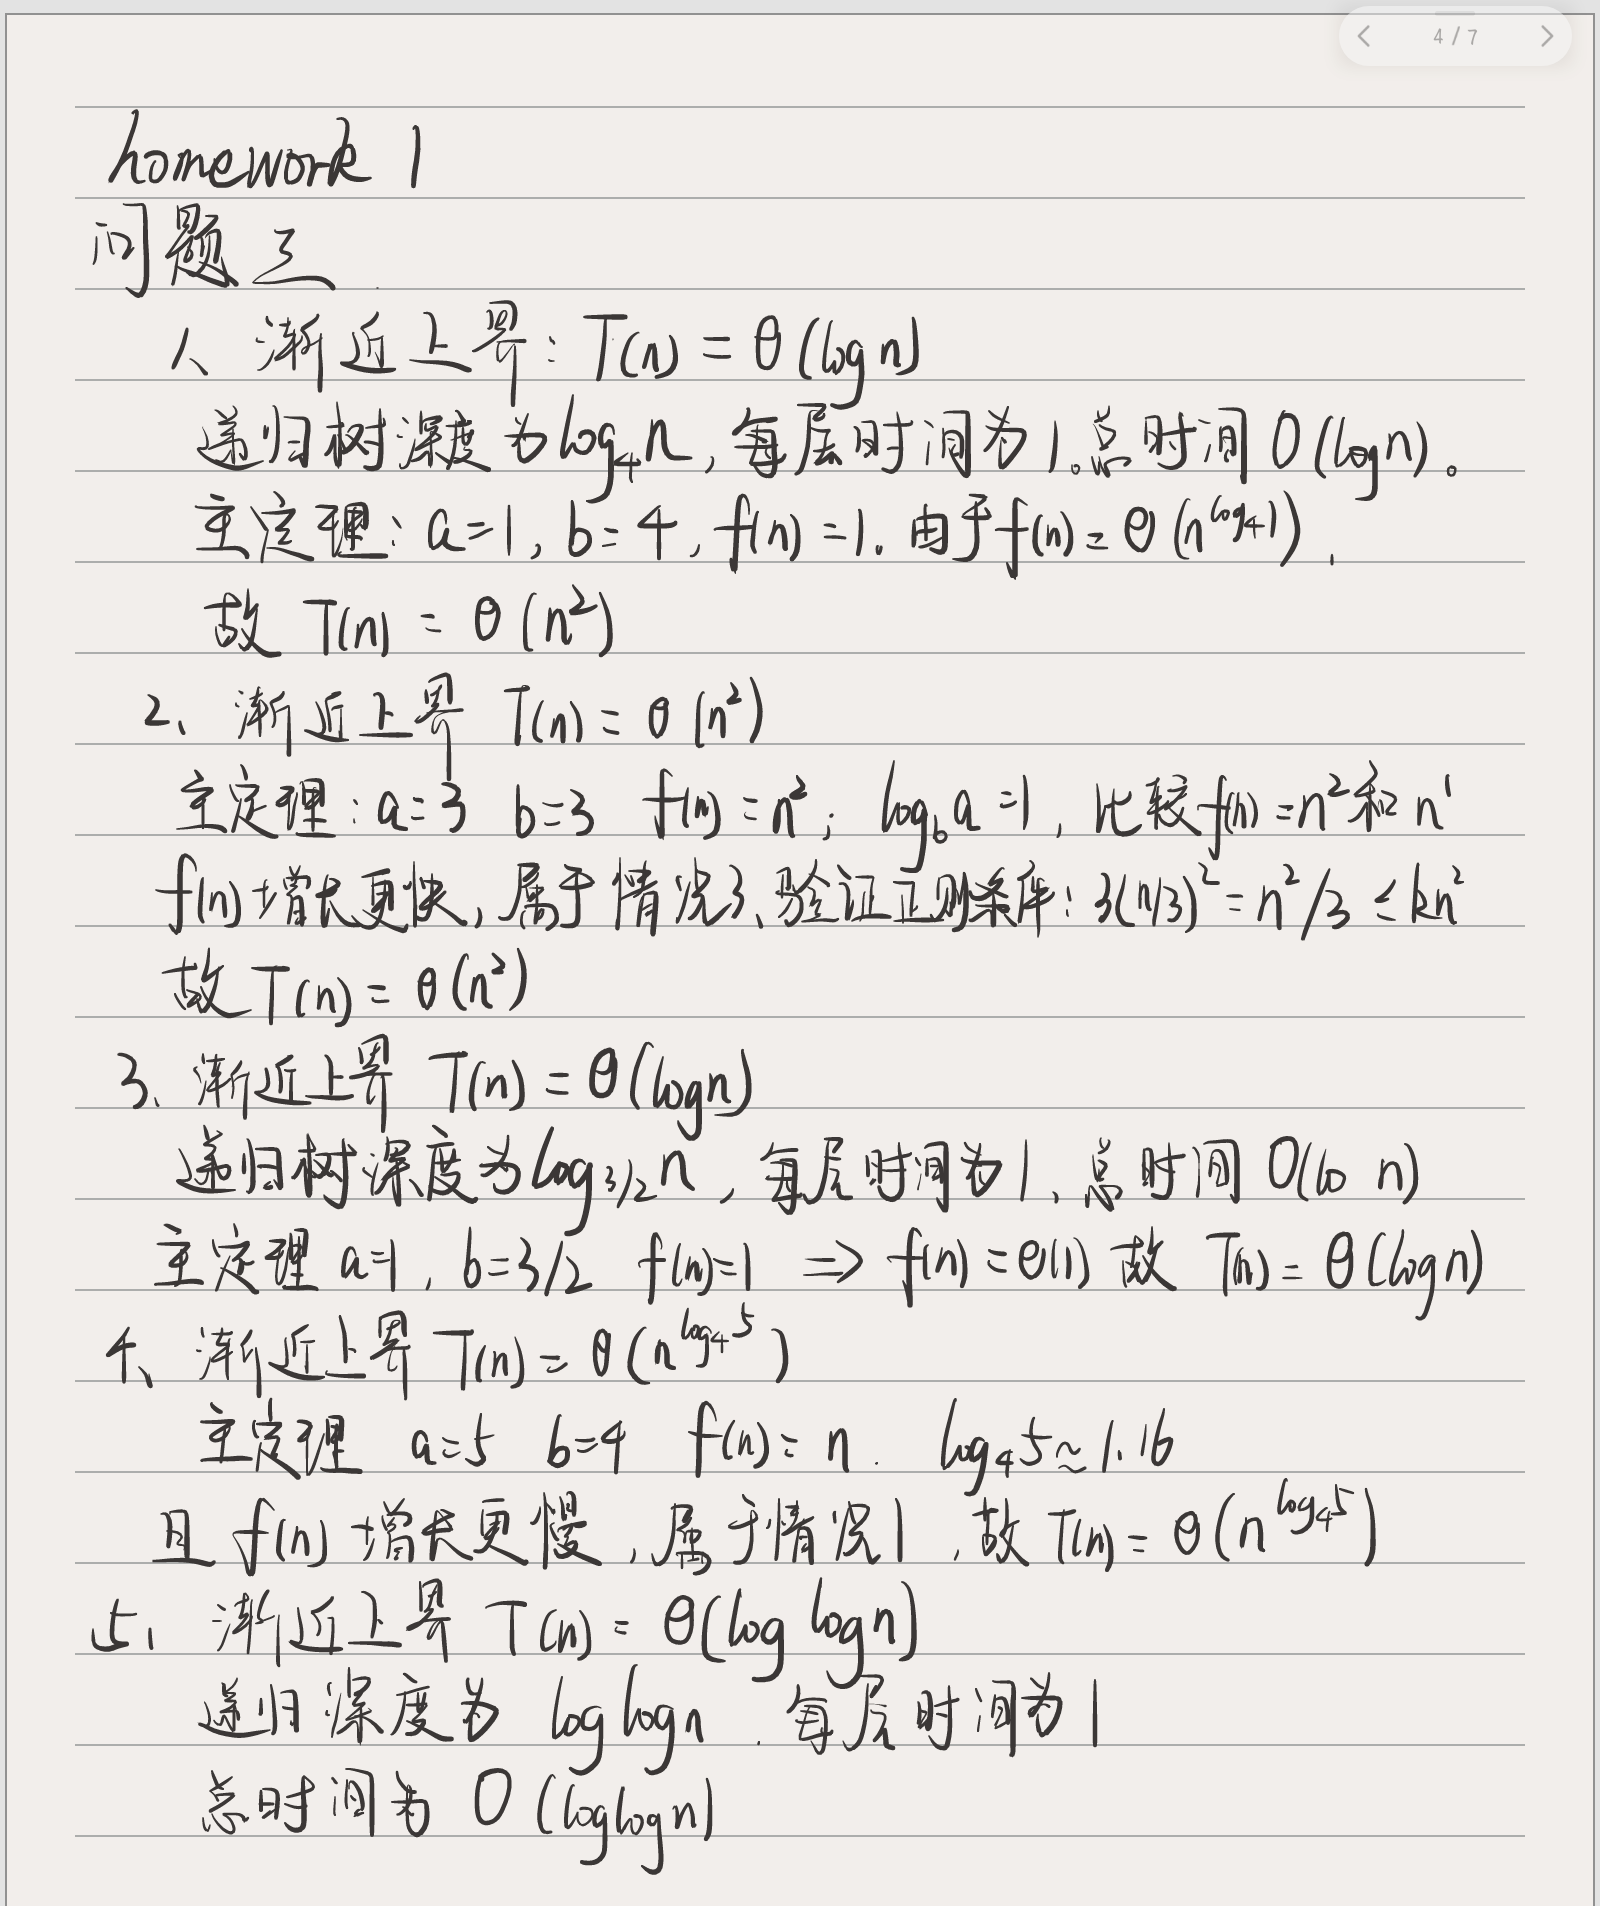 4 / 7
homework 1
问题三
1、渐近上界：T(n) = θ(log n)
递归树深度为log₄n，每层时间为1。总时间O(log n)。
主定理：a=1, b=4, f(n)=1. 由于f(n)=θ(n^log₄1),
故 T(n) = θ(n²)
2、渐近上界 T(n) = θ(n²)
主定理：a=3 b=3 f(n)=n²; log_b a=1, 比较f(n)=n²和n¹
f(n)增长更快，属于情况3、验证正则条件：3(n/3)²=n²/3 ≤ kn²
故T(n) = θ(n²)
3、渐近上界 T(n) = θ(log n)
递归树深度为log_3/2 n，每层时间为1、总时间O(lo n)
主定理 a=1, b=3/2 f(n)=1 ⇒ f(n)=θ(1) 故 T(n)=θ(log n)
4、渐近上界 T(n)=θ(n^log₄5)
主定理 a=5 b=4 f(n)=n. log₄5≈1.16
且 f(n)增长更慢，属于情况1，故T(n)=θ(n^log₄5)
5、渐近上界 T(n)=θ(log log n)
递归深度为 log log n . 每层时间为1
总时间为 O(log log n)